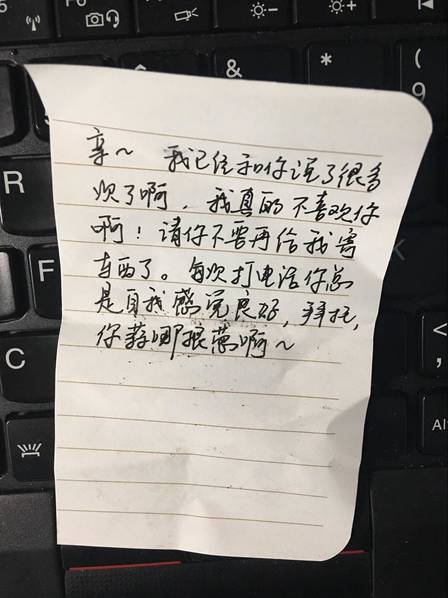 亲～ 我已经和你说了很多
次了啊，我真的不喜欢你
啊！请你不要再给我寄
东西了。每次打电话你总
是自我感觉良好，拜托，
你算哪根葱啊～
&
*
(
9
R
F
C
Alt